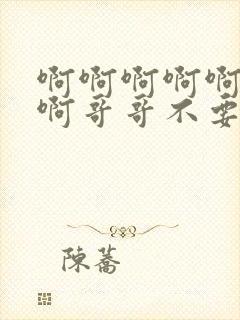 啊啊啊啊啊
啊哥哥不要
陳蕎